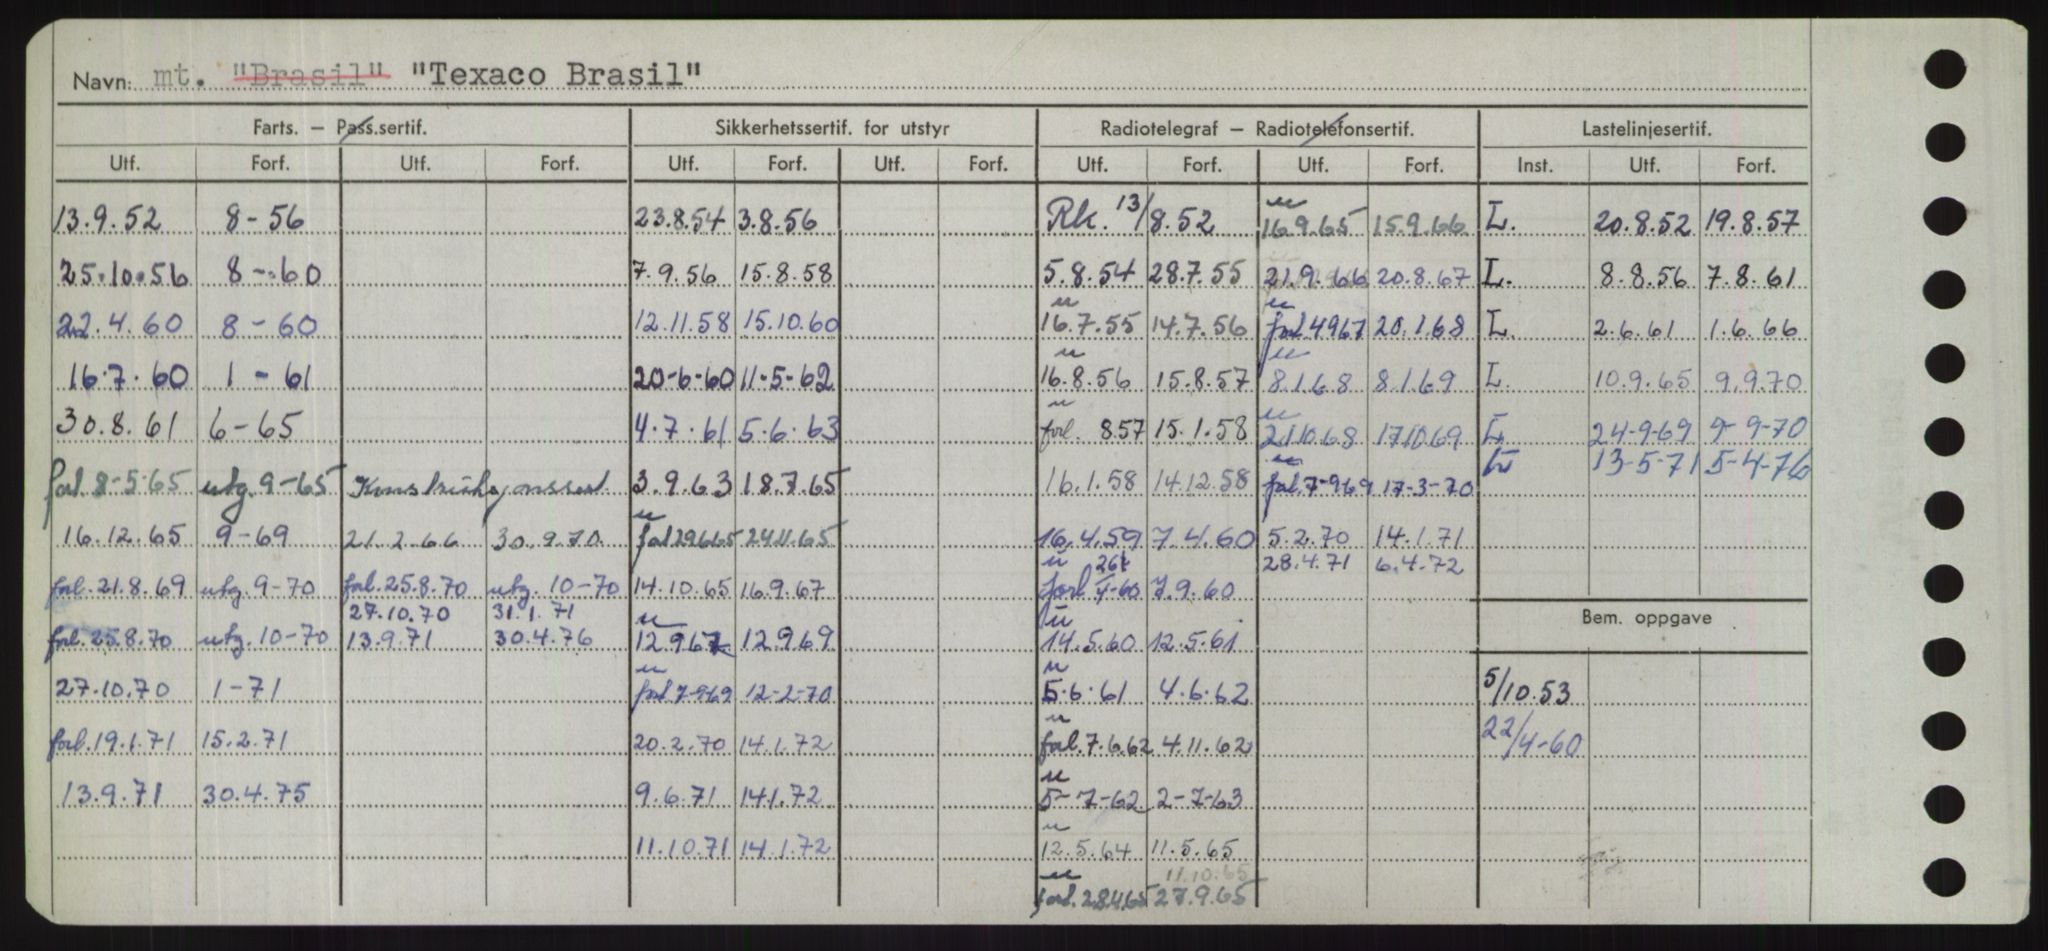 Navn: mt. "Brasil" "Texaco Brasil"
Farts. – Pass.sertif. Sikkerhetssertif. for utstyr Radiotelegraf – Radiotelefonsertif. Lastelinjesertif.
Utf. Forf. Utf. Forf. Utf. Forf. Utf. Forf. Utf. Forf. Utf. Forf. Inst. Utf. Forf.
13.9.52 8-56 23.8.54 3.8.56 Rk. 13/8.52 16.9.65 15.9.66 L. 20.8.52 19.8.57
25.10.56 8-60 7.9.56 15.8.58 5.8.54 28.7.55 21.9.66 20.8.67 L. 8.8.56 7.8.61
22.4.60 8-60 12.11.58 15.10.60 16.7.55 14.7.56 forl 4967 20.1.68 L. 2.6.61 1.6.66
16.7.60 1-61 20-6-60 11-5-62 16.8.56 15.8.57 8.1.68 8.1.69 L. 10.9.65 9.9.70
30.8.61 6-65 4.7.61 5.6.63 forl. 857 15.1.58 21.10.68 17.10.69 L. 24-9-69 9-9-70
L 13-5-71 5-4-76
forl 8-5-65 utg. 9-65 Konstruksjonssert. 3.9.63 18.7.65 16.1.58 14.12.58 forl. 7-9-69 17-3-70
16.12.65 9-69 21.2.66 30.9.70 forl 29665 24.11.65 16.4.59 7.4.60 5.2.70 14.1.71
28.4.71 6.4.72
forl. 21.8.69 utg. 9-70 forl. 25.8.70 utg. 10-70 14.10.65 16.9.67 forl 4-60 7.9.60
27.10.70 31.1.71 Bem. oppgave
forl. 25.8.70 utg. 10-70 13.9.71 30.4.76 12.9.67 12.9.69 14.5.60 12.5.61
27.10.70 1-71 forl 7-9-69 12-2-70 5.6.61 4.6.62 5/10.53
forl. 19.1.71 15.2.71 20.2.70 14.1.72 forl. 7.6.62 4.11.62 22/4-60
13.9.71 30.4.75 9.6.71 14.1.72 5-7-62 2-7-63
11.10.71 14.1.72 12.5.64 11.5.65
11.10.65
forl. 28.4.65 27.9.65